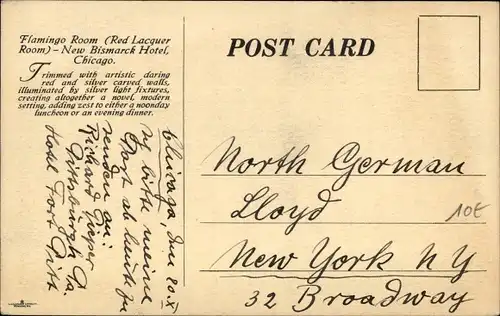 Flamingo Room (Red Lacquer
Room) – New Bismarck Hotel,
Chicago.
Trimmed with artistic daring
red and silver carved walls,
illuminated by silver light fixtures,
creating altogether a novel, modern
setting, adding zest to either a noonday
luncheon or an evening dinner.
POST CARD
Chicago, den 20. XI
bitte meine
Post ab heute zu
senden an:
Richard
Pittsburgh Pa.
Hotel Fort Pitt
North German
Lloyd
New York N Y
32 Broadway
10€